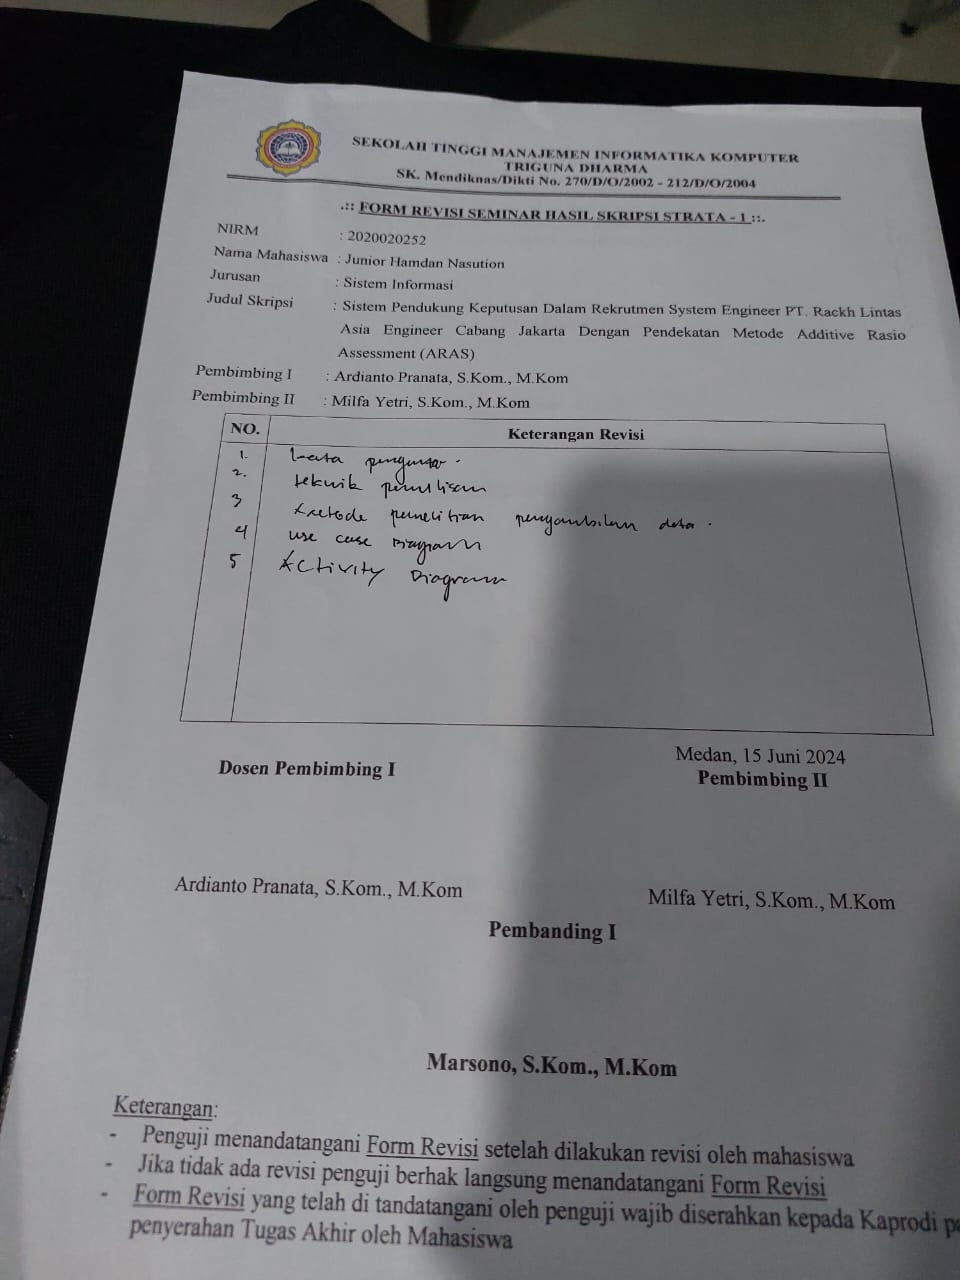 SEKOLAH TINGGI MANAJEMEN INFORMATIKA KOMPUTER
TRIGUNA DHARMA
SK. Mendiknas/Dikti No. 270/D/O/2002 - 212/D/O/2004
.:: FORM REVISI SEMINAR HASIL SKRIPSI STRATA - 1 ::.
NIRM : 2020020252
Nama Mahasiswa : Junior Hamdan Nasution
Jurusan : Sistem Informasi
Judul Skripsi : Sistem Pendukung Keputusan Dalam Rekrutmen System Engineer PT. Rackh Lintas
Asia Engineer Cabang Jakarta Dengan Pendekatan Metode Additive Rasio
Assessment (ARAS)
Pembimbing I : Ardianto Pranata, S.Kom., M.Kom
Pembimbing II : Milfa Yetri, S.Kom., M.Kom
NO. Keterangan Revisi
1. kata pengantar.
2. teknik penulisan
3 metode penelitian pengambilan data.
4 use case Diagram
5 Activity Diagram
Medan, 15 Juni 2024
Dosen Pembimbing I Pembimbing II
Ardianto Pranata, S.Kom., M.Kom Milfa Yetri, S.Kom., M.Kom
Pembanding I
Marsono, S.Kom., M.Kom
Keterangan:
- Penguji menandatangani Form Revisi setelah dilakukan revisi oleh mahasiswa
- Jika tidak ada revisi penguji berhak langsung menandatangani Form Revisi
- Form Revisi yang telah di tandatangani oleh penguji wajib diserahkan kepada Kaprodi
penyerahan Tugas Akhir oleh Mahasiswa